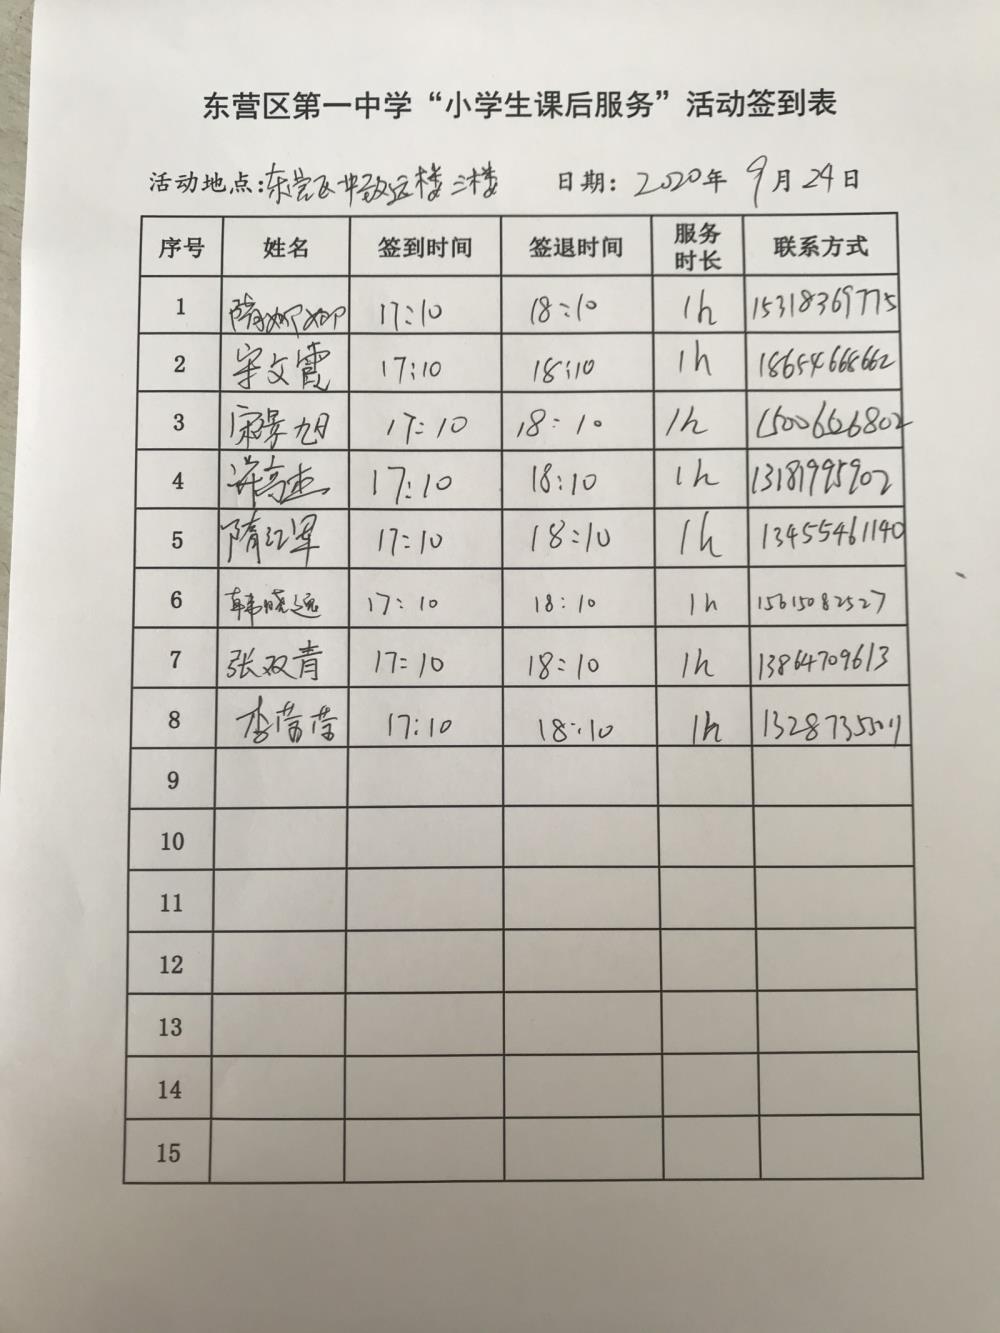 东营区第一中学“小学生课后服务”活动签到表
活动地点:东营区一中致远楼三楼 日期: 2020年 9月 24日
序号 姓名 签到时间 签退时间 服务时长 联系方式
1 隋娜娜 17:10 18:10 1h 15318369775
2 宋文霞 17:10 18:10 1h 18654668662
3 宋景旭 17:10 18:10 1h 15006626802
4 许高杰 17:10 18:10 1h 13181995902
5 隋江军 17:10 18:10 1h 13455461140
6 韩晓远 17:10 18:10 1h 15615082527
7 张双青 17:10 18:10 1h 13864709613
8 李蕾蕾 17:10 18:10 1h
9
10
11
12
13
14
15